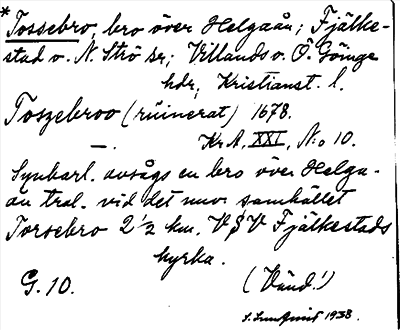 * Tossebro, bro över Helgaån; Fjälke-
stad o. N. Strö sr; Villands o. Ö. Göinge
hdr, Kristianst. l.
Toszebroo (rüinerat) 1678.
— . Kr A, XXI, N:o 10.
Synbarl. avsågs en bro över Helga-
ån tral. vid det nuv. samhället
Torsebro 2 1/2 km. V§V Fjälkestads
kyrka.
G. 10. (Vänd!)
1938.